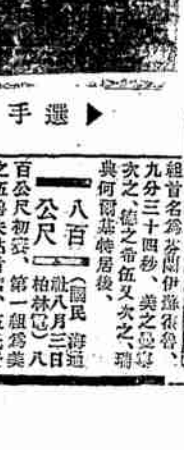 手選▶
組首名為芬蘭伊蘇張魯、
九分三十四秒、美之曼寗
次之、德之希伍又次之、瑞
典何爾基特居後、
八百公尺
（國民海通
社八月三日
柏林電）八
百公尺初賽、第一組為美